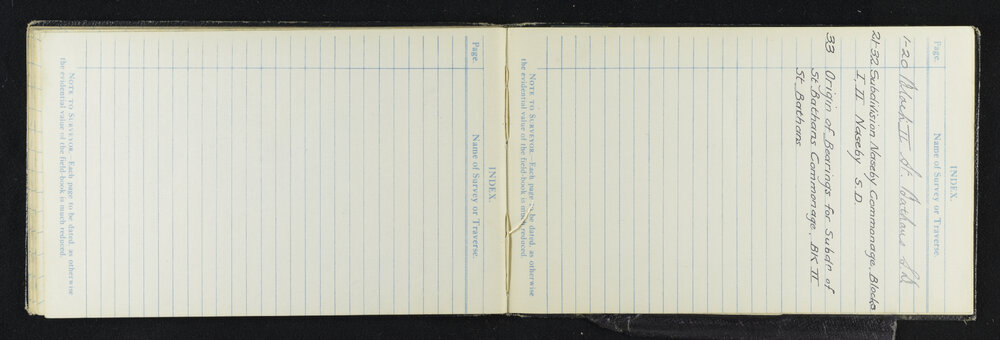 INDEX.
Page. Name of Survey or Traverse.
1-20 Block II St. Bathans S.D.
21-32 Subdivision Naseby Commonage, Blocks
I, II Naseby S.D.
33 Origin of Bearings for Subdn of
St Bathans Commonage. BK II
St Bathans
NOTE TO SURVEYOR.—Each page to be dated, as otherwise
the evidential value of the field-book is much reduced.
INDEX.
Page. Name of Survey or Traverse.
NOTE TO SURVEYOR.—Each page to be dated, as otherwise
the evidential value of the field-book is much reduced.